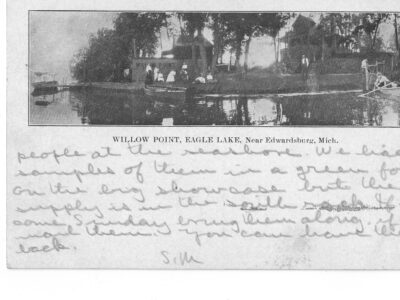 WILLOW POINT, EAGLE LAKE, Near Edwardsburg, Mich.
people at the seashore. We had
samples of them in a green
on the big showcase but the
supply is in the salt sack. If
some Sunday bring them along if
want them. You can have the
sack.
S.M